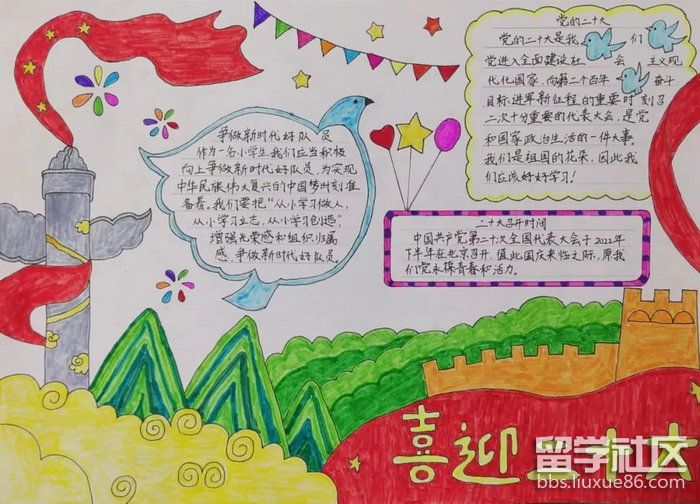 党的二十大
党的二十大是我们
党进入全面建设社会主义现
代化国家、向第二个百年奋斗
目标进军新征程的重要时刻召
二次十分重要的代表大会，是党
和国家政治生活的一件大事。
我们是祖国的花朵，因此我
们应该好好学习！
争做新时代好队员
作为一名小学生我们应当积极
向上争做新时代好队员，为实现
中华民族伟大复兴的中国梦时刻准
备着，我们要把“从小学习做人、
从小学习立志、从小学习创造”，
增强光荣感和组织归属
感，争做新时代好队员。
二十大召开时间
中国共产党第二十次全国代表大会于2022年
下半年在北京召开，值此国庆来临之际，愿我
们党永葆青春和活力。
喜迎二十大
留学社区
bbs.liuxue86.com